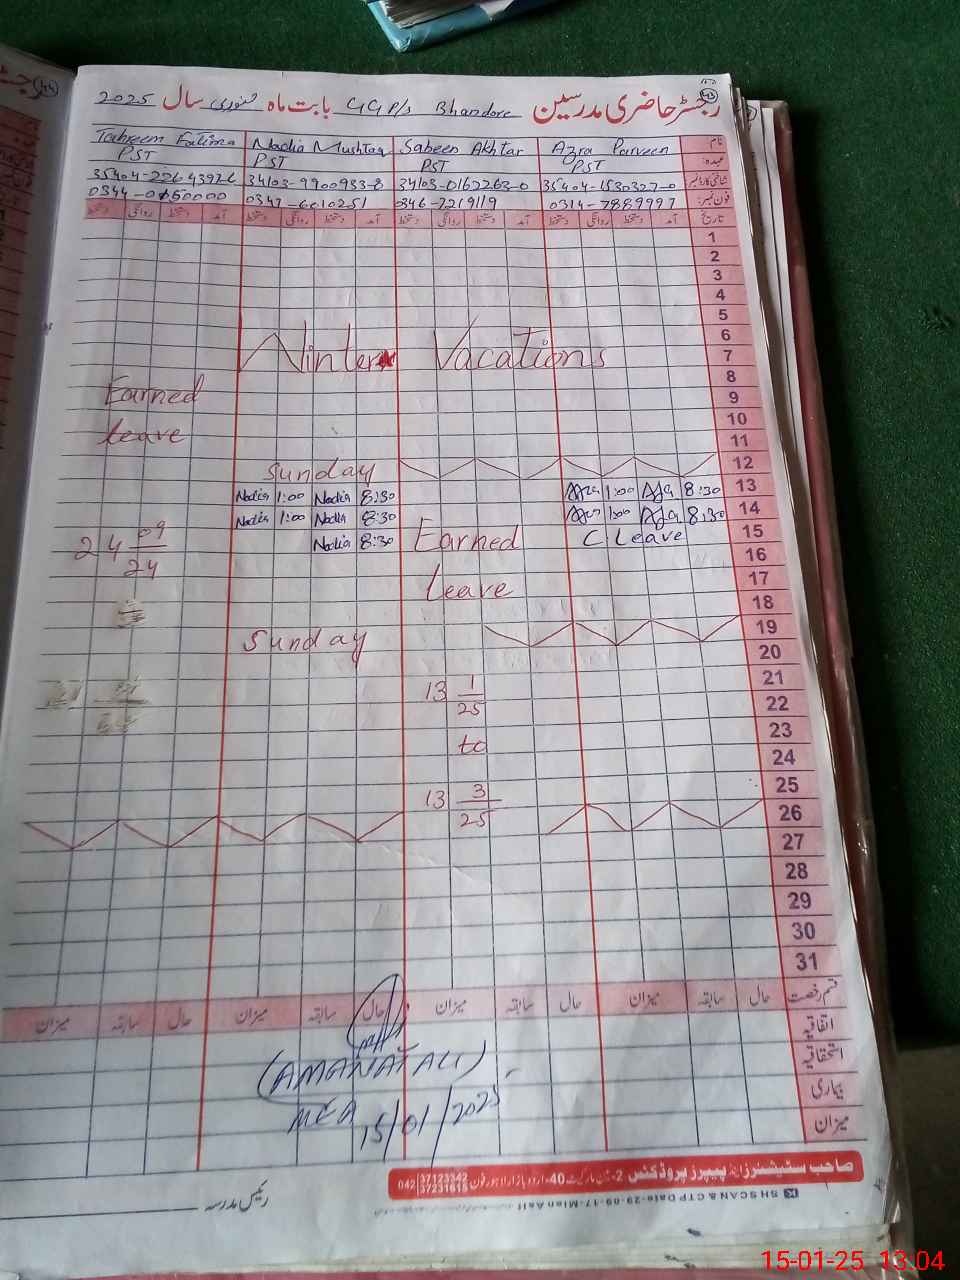 رجسٹر حاضری مدرسین GGP/s Bhandore بابت ماہ جنوری سال 2025
نام Azra Parveen Sabeen Akhtar Nadia Mushtaq Tahreem Fatima
عہدہ: PST PST PST PST
شناختی کارڈ نمبر 35404-1530327-0 34103-0167263-0 34103-9900933-8
فون نمبر: 0314-7889997 0346-7219119 0347-6010251
تاریخ آمد دستخط روانگی دستخط آمد دستخط روانگی دستخط آمد دستخط روانگی دستخط آمد دستخط روانگی دستخط
1
2
3
4
5
6
Winter Vacations
7
8
Earned
9
10
leave
11
12
Sunday
13
Nadia 1:00 Nadia 8:30
Azra 1:00 Azra 8:30
14
Nadia 1:00 Nadia 8:30
Azra 1:00 Azra 8:30
15
Nadia 8:30
Earned
C Leave
24 09/24
16
17
Leave
18
19
Sunday
20
21
13 1/25
22
23
to
24
25
13 3/25
26
27
28
29
30
31
قسم رخصت حال سابقہ میزان حال سابقہ میزان حال سابقہ میزان حال سابقہ میزان
اتفاقیہ
استحقاقیہ
بیماری
میزان
(AMANAT ALI)
MEA 15/01/2025
صاحب سٹیشنرز اینڈ پیپرز پروڈکٹس 2-40 اردو بازار لاہور فون 042 37123342 37231615
SH SCAN & CTP Date-29-09-17-Mian Asif
رئیس مدرسہ
15-01-25 13:04